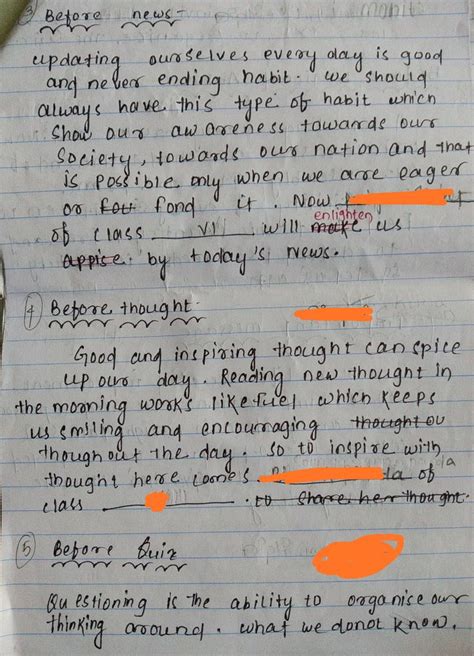 ③ Before news-
updating ourselves every day is good
and never ending habit. we should
always have this type of habit which
Show our awareness towards our
Society, towards our nation and that
is possible only when we are eager
or fou fond it. Now
enlighten
of class VI will make us
appise by today's news.
④ Before thought.
Good and inspiring thought can spice
up our day. Reading new thought in
the morning works like fuel which keeps
us smiling and encouraging thought ou
thoughout the day. so to inspire with
thought here comes la of
class . to share her thought.
⑤ Before Quiz
Questioning is the ability to organise our
thinking around. what we donot know.